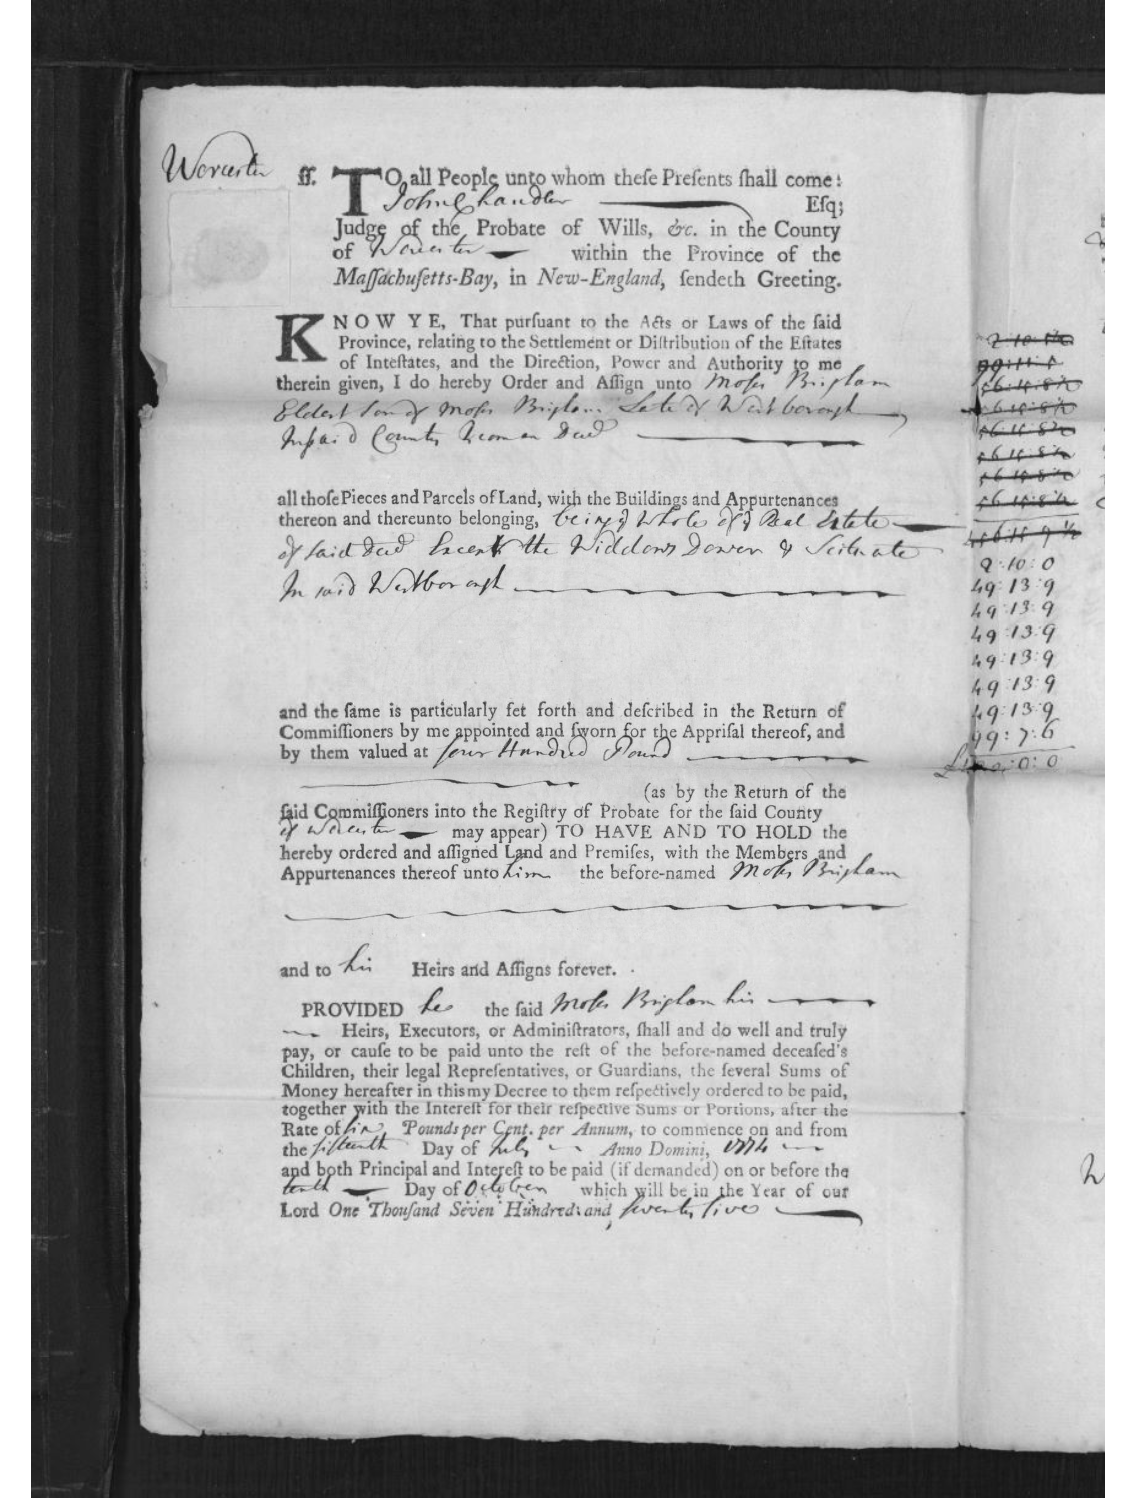 Worcester ſſ. TO all People unto whom theſe Preſents ſhall come:
John Chandler Eſq;
Judge of the Probate of Wills, &c. in the County
of Worcester within the Province of the
Maſſachuſetts-Bay, in New-England, ſendeth Greeting.
KNOW YE, That purſuant to the Acts or Laws of the ſaid
Province, relating to the Settlement or Diſtribution of the Eſtates
of Inteſtates, and the Direction, Power and Authority to me
therein given, I do hereby Order and Aſſign unto Moses Brigham
Eldest Son of Moses Brigham Late of Westborough
In said County Yeoman Decd
all thoſe Pieces and Parcels of Land, with the Buildings and Appurtenances
thereon and thereunto belonging, being ye Whole of ye Real Estate
of said Decd Except the Widdows Dower & Scituate
In said Westborough
and the ſame is particularly ſet forth and deſcribed in the Return of
Commiſſioners by me appointed and ſworn for the Appriſal thereof, and
by them valued at four Hundred Pound
(as by the Return of the
ſaid Commiſſioners into the Regiſtry of Probate for the ſaid County
of Worcester may appear) TO HAVE AND TO HOLD the
hereby ordered and aſſigned Land and Premiſes, with the Members and
Appurtenances thereof unto him the before-named Moses Brigham
and to his Heirs and Aſſigns forever.
PROVIDED he the ſaid Moses Brigham his
Heirs, Executors, or Adminiſtrators, ſhall and do well and truly
pay, or cauſe to be paid unto the reſt of the before-named deceaſed's
Children, their legal Repreſentatives, or Guardians, the ſeveral Sums of
Money hereafter in this my Decree to them reſpectively ordered to be paid,
together with the Intereſt for their reſpective Sums or Portions, after the
Rate of six Pounds per Cent. per Annum, to commence on and from
the fifteenth Day of July Anno Domini, 1774
and both Principal and Intereſt to be paid (if demanded) on or before the
tenth Day of October which will be in the Year of our
Lord One Thouſand Seven Hundred and seventy five
2:10:0
49:13:9
49:13:9
49:13:9
49:13:9
49:13:9
49:13:9
99:7:6